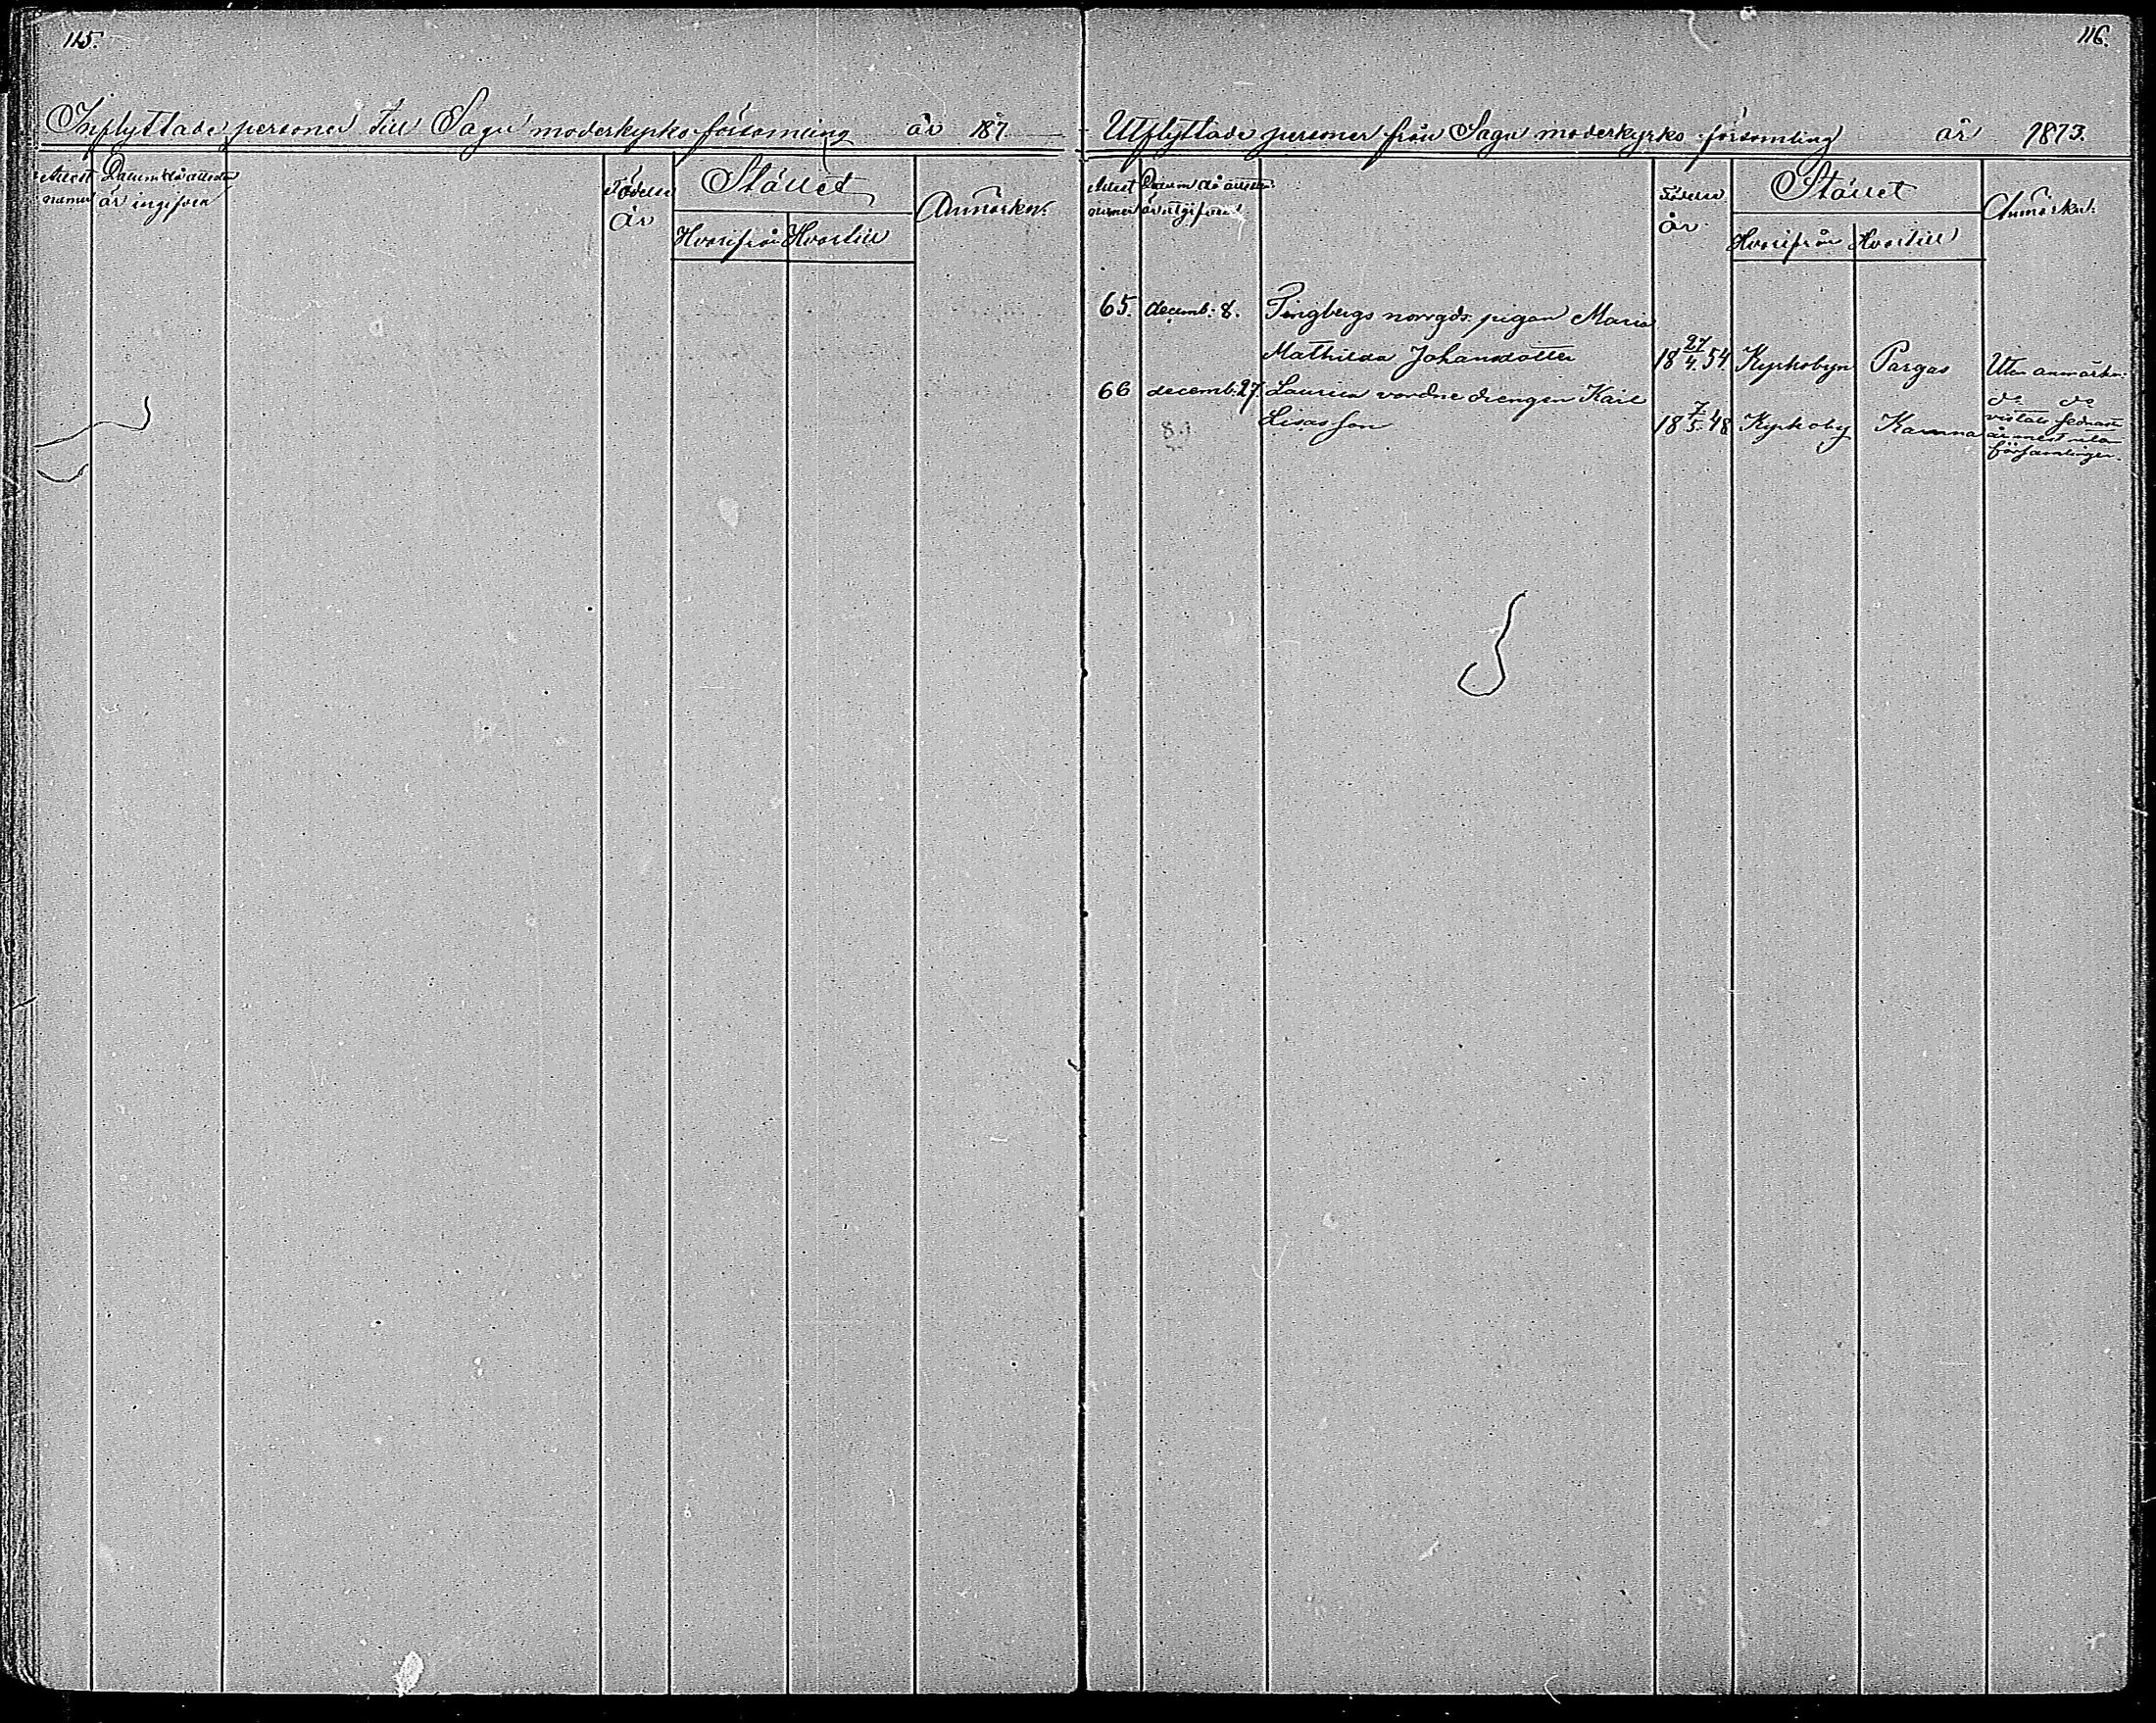 115.
Inflyttade personer till Sagu moderkyrko församling år 187
Attest numer
Datum då attesten är ingifven
Födelse år
Stället
Hvarifrån Hvartill
Anmärkn.
116.
Utflyttade personer från Sagu moderkyrko församling år 1873.
Attest numer
Datum då attesten är utgifven
Födelse år
Stället
Hvarifrån Hvartill
Anmärkn.
65. decemb. 8. norrgds pigan Maria
Mathilda Johansdotter 18 27/4. 54 Kyrkobyn Pargas Utan anmärkn.
66 decemb. 27. Laurila vordne drengen Karl do do
Lisas son 18 7/5. 48 Kyrkoby Karuna vistats sednaste
år mest utan
församlingen.